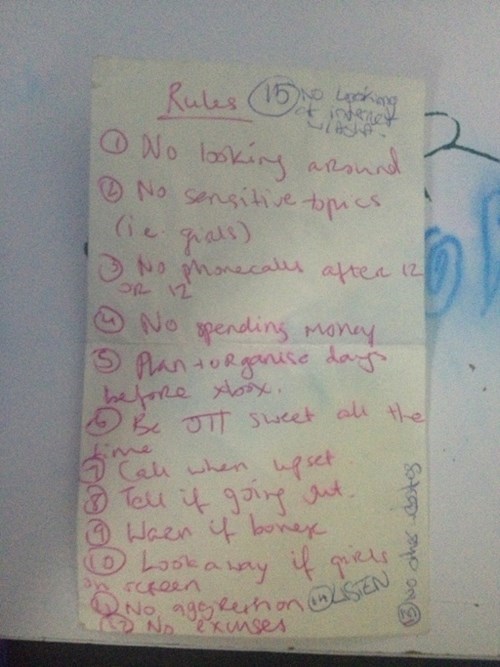 Rules
(15) No Looking
at internet
① No looking around
② No sensitive topics
(i.e. girls)
③ No phonecalls after 12
OR 12
④ No spending money
⑤ Plan + organise days
before xbox.
⑥ Be OTT sweet all the
time
⑦ Call when upset
⑧ Tell if going out.
⑨ Warn if
⑩ Look away if girls
on screen
⑪ No aggression ⑭ LISTEN
⑫ No excuses
⑬ No other